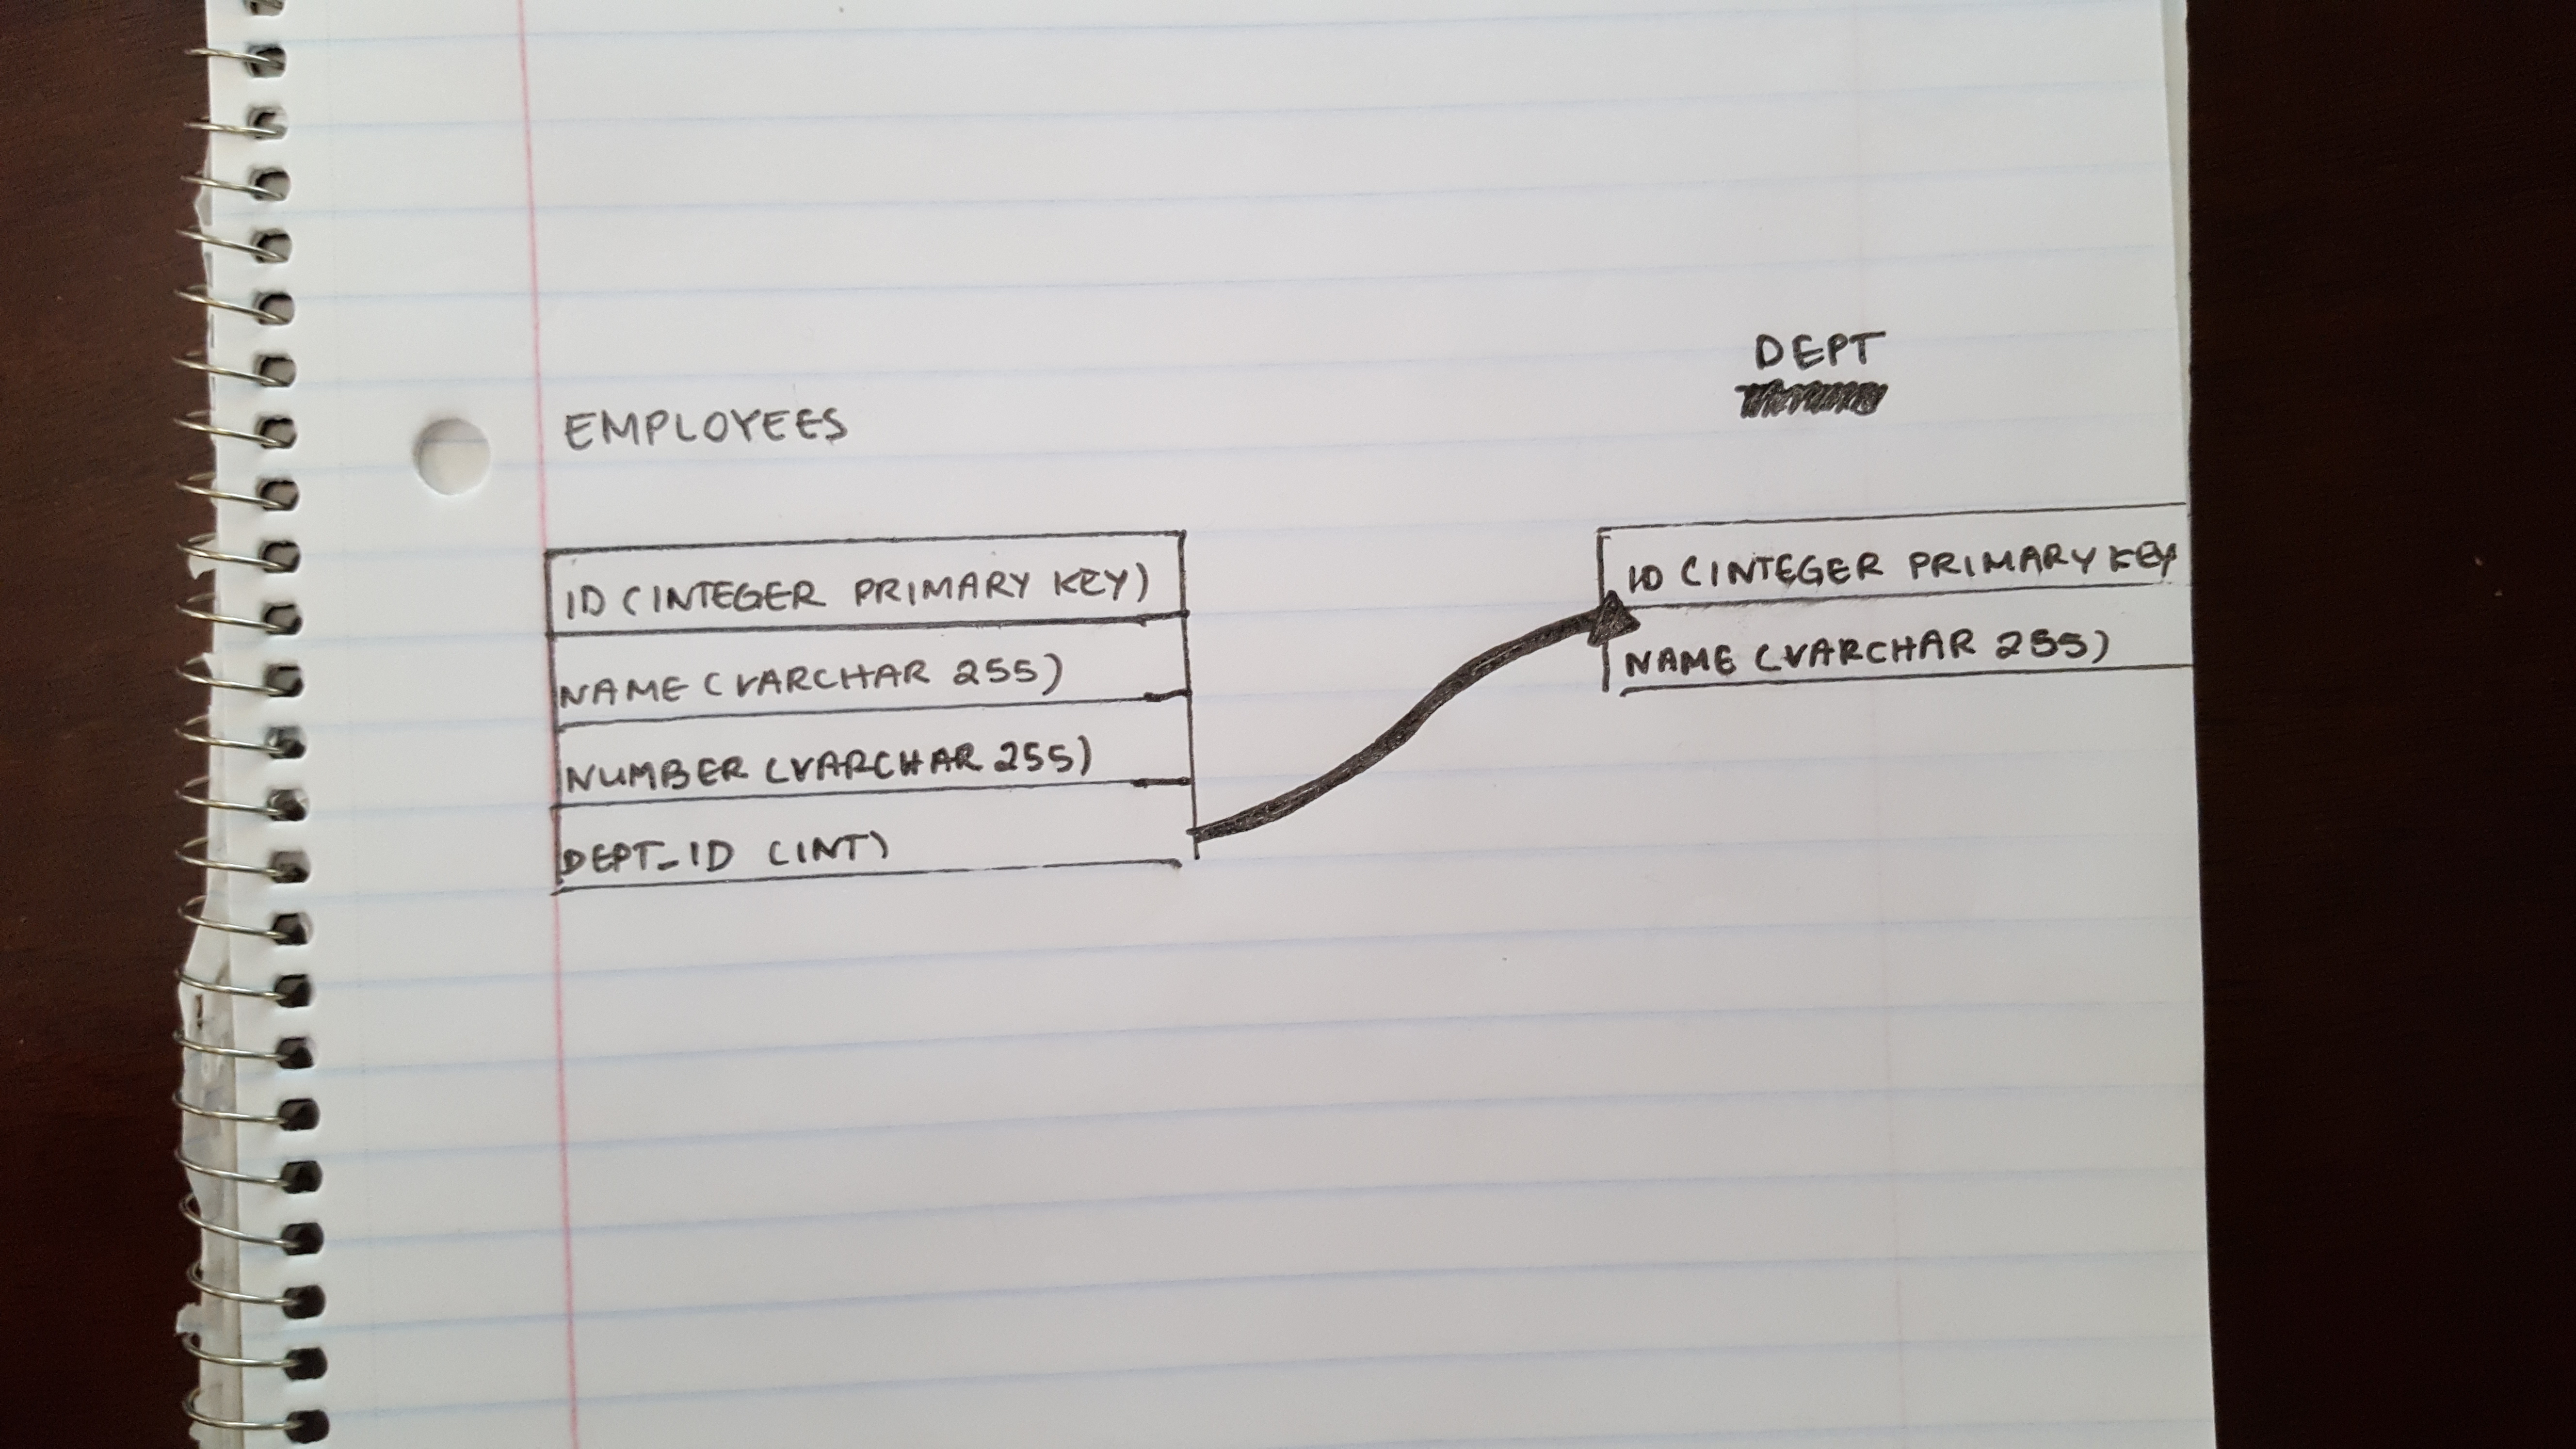 DEPT
EMPLOYEES
ID (INTEGER PRIMARY KEY)
NAME (VARCHAR 255)
NUMBER (VARCHAR 255)
DEPT_ID (INT)
ID (INTEGER PRIMARY KEY
NAME (VARCHAR 255)